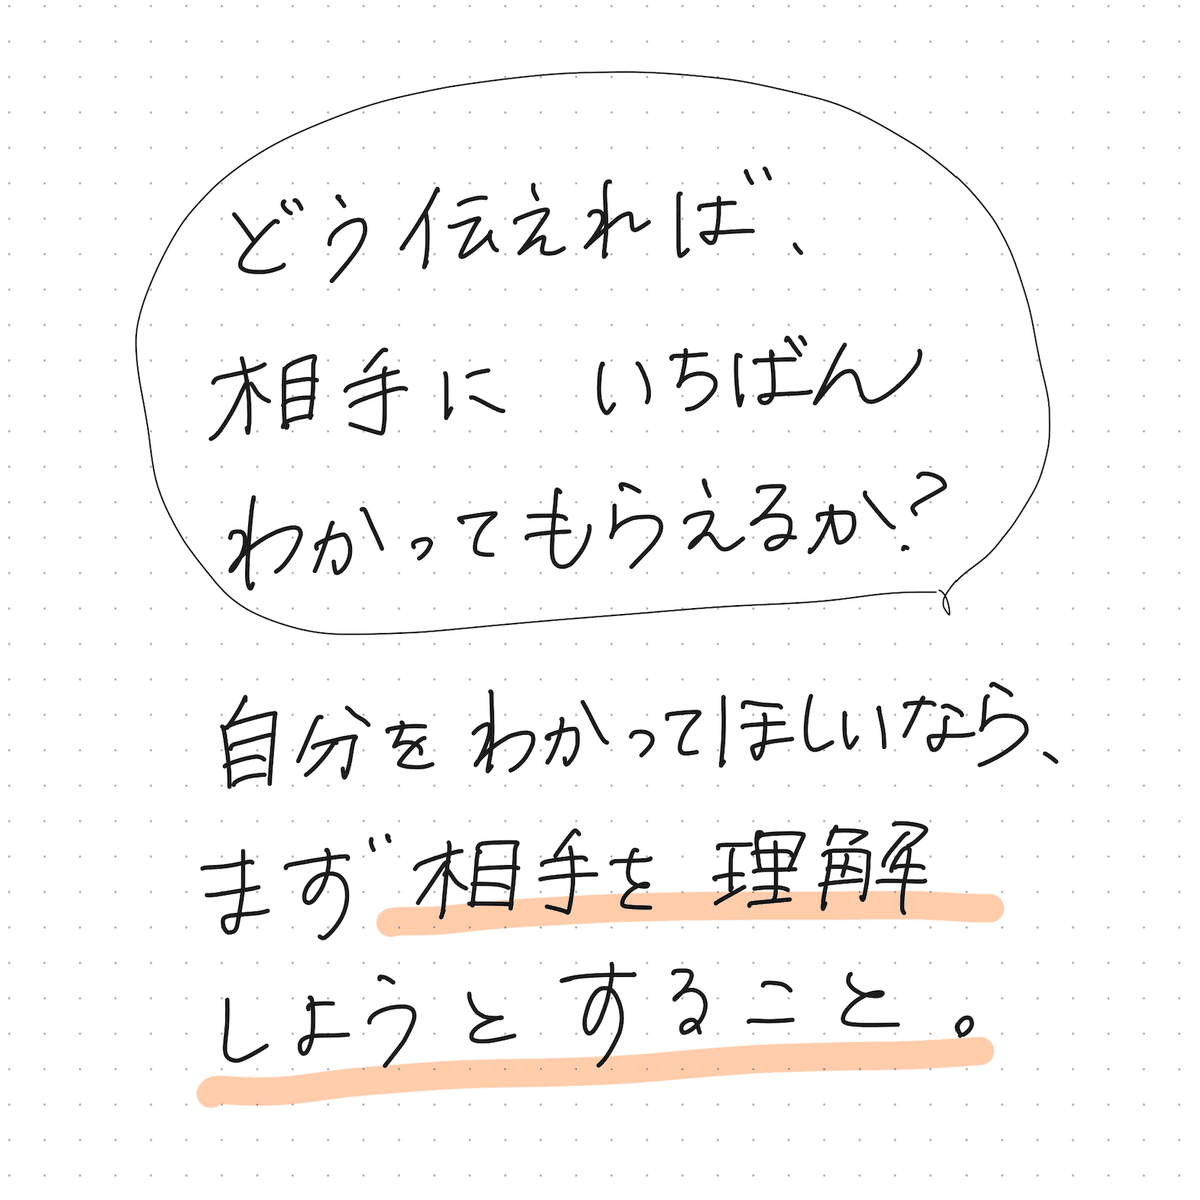 どう伝えれば、
相手に いちばん
わかってもらえるか?
自分をわかってほしいなら、
まず相手を理解
しようとすること。